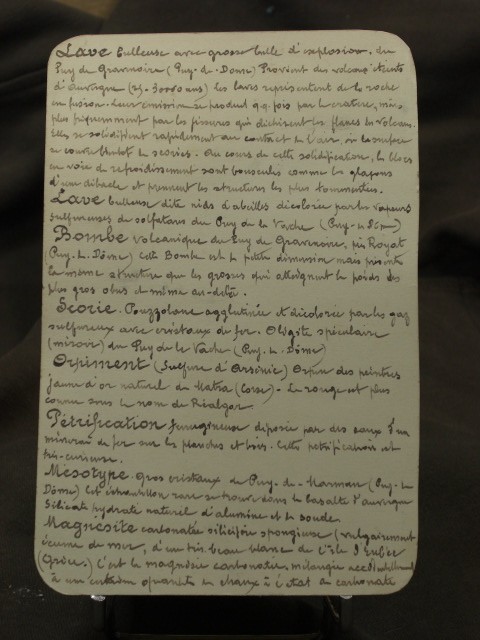 Lave bulleuse avec grosse bulle d'explosion, du
Puy de Gravenoire (Puy-de-Dome) Provient des volcans éteints
d'Auvergne (25-30000 ans) les laves représentent de la roche
en fusion. Leur émission se produit q.q. fois par le cratère, mais
plus fréquemment par les fissures qui déchirent les flancs du volcan.
Elles se solidifient rapidement au contact de l'air, où la surface
se couvre bientôt de scories. Au cours de cette solidification, les blocs
en voie de refroidissement sont bousculés comme les glaçons
d'une débacle et prennent les structures les plus tourmentées.
Lave bulleuse dite nids d'abeilles décolorée par les vapeurs
sulfureuses de solfatares du Puy de la Vache (Puy-de-Dôme)
Bombe volcanique du Puy de Gravenoire, près Royat
(Puy-de-Dôme) Cette Bombe est de petite dimension mais présente
la même structure que les grosses qui atteignent le poids des
plus gros obus et même au-delà.
Scorie. Pouzzolane agglutinée et décolorée par les gaz
sulfureux avec cristaux de fer. Oligiste spéculaire
(miroir) du Puy de la Vache (Puy-de-Dôme)
Orpiment (Sulfure d'Arsenic) Orpin des peintres
jaune d'or naturel de Matra (Corse) - Le rouge est plus
connu sous le nom de Réalgar.
Pétrification ferrugineuse déposée par des eaux d'un
minerai de fer sur les planches et bois. Cette pétrification est
très-curieuse.
Mésotype gros cristaux du Puy-de-Marman (Puy-de-
Dôme) Cet échantillon rare se trouve dans le basalte d'Auvergne
Silicate hydraté naturel d'alumine et de soude.
Magnésite carbonatée silicifère spongieuse (vulgairement
écume de mer, d'un très beau blanc de l'île d'Eubée
(Grèce) C'est la magnésie carbonatée mélangée accidentellement
à une certaine quantité de chaux à l'état de carbonate